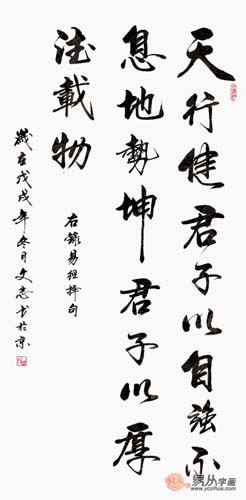 天行健君子以自強不
息地勢坤君子以厚
德載物
右錄易經擇句
歲在戊戌年冬月文志书於京
易从字画
www.yczihua.com